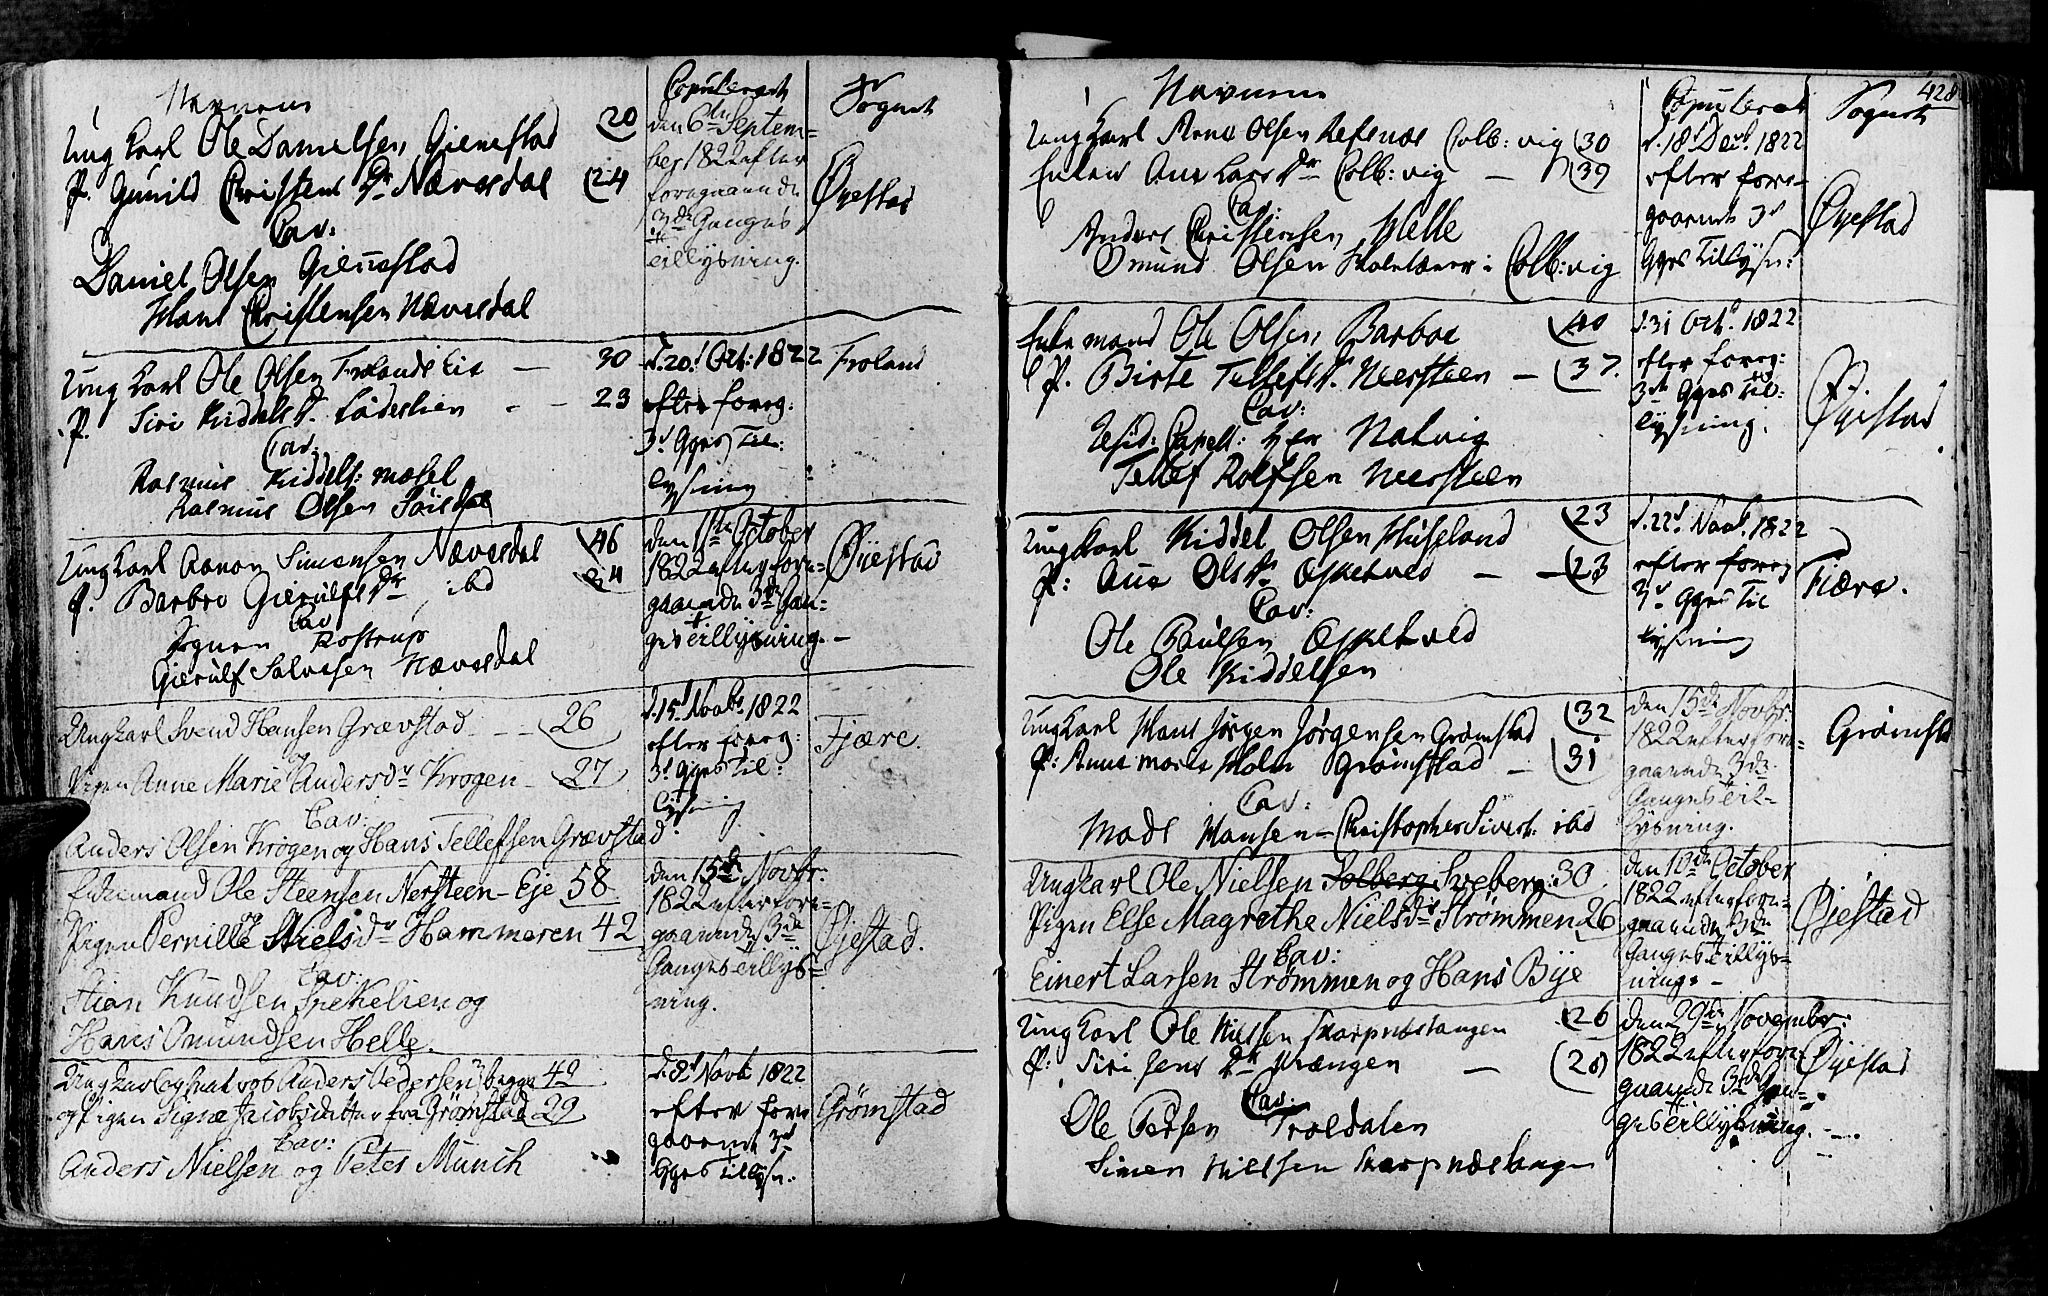 Navnene
Copuleret
Sognet
Ung Karl Ole Danielsen Gienestad 20
P. Gunild Christens Dr Næversdal 24
Cav:
Daniel Olsen Gienestad
Hans Christensen Næversdal
den 6te Septem-
ber 1822 efter
foregaaende
3de Ganges
tillysning.
Øyestad
Ung Karl Ole Olsen Frolands Eie — 30
P. Siri Kiddels dr. — 23
Cav:
Rasmus Kiddels: mæsel
Rasmus Olsen
d. 20d Oct: 1822
efter foreg:
3d Gges Til:
lysning
Froland
Ung Karl Aaron Simensen Næversdal 46
P. Barbro Gierulfs Dr ibd 24
Cav
Sognepr Rostrup
Gierulf Salvesen Nævesdal
den 1ste October
1822 efter fore-
gaaende 3de Gan-
ges tillysning. —
Øyestad
Ungkarl Svend Hansen Grævstad — 26
og
Pigen Anne Marie Andersdr Krogen — 27
Cav:
Anders Olsen Krogen og Hans Tellefsen Grævstad.
d. 15d Novbr 1822
efter foreg:
3d Gges Til:
lysning
Fjære.
Enkemand Ole Steensen Nersteen-Eje 58
og
Pigen Pernille Nielsdr Hammeren 42
Cav:
Stian Knudsen Spekelien og
Hans Omundsen Helle.
den 15de Novbr:
1822 efter fore-
gaaende 3de
Ganges tillys-
ning.
Øjestad.
Ungkarl og Matros Anders Pedersen begge 49
og Pigen Signe Jacobsdatter fra Grømstad 29
Cav:
Anders Nielsen og Peter Munch
d. 8d Novb 1822
efter fore
gaaend 3d
Gges Tillysn.
Grømstad
428
Navnene
Copuleret
Sognet
Ung Karl Arne Olsen Refsnæs Colb:vig 30
Enken Ane Lars Dr Colb:vig — 39
Cav:
Anders Christensen Helle
Omund Olsen Skolelærer i Colb:vig
d. 18d Decb. 1822
efter fore-
gaaend 3d
Gges Tillysn:
Øyestad
Enkemand Ole Olsen Barboe 40
P. Birte Tellefs dr. Neersteen — 37.
Cav:
Resid: Capell: Hr Natvig
Tellef Rolfsen Neersteen
d. 31 Octb. 1822
efter foreg:
3de Gges Til:
lysning.
Øyestad
Ung Karl Kiddel Olsen Huseland 23
P: Ane Ols Dr. Espetved — 23
Cav:
Ole Poulsen Espetved
Ole Kiddelsen
d. 22d Novb. 1822
efter foreg
3d Gges Til
lysning
Fiære.
Ung Karl Hans Jørgen Jørgensen Grømstad 32
P: Anne Marie Holm Grømstad — 31
Cav:
Mads Hansen — Christopher Sivert: ibd
den 15de Novbr.
1822 efter fore-
gaaende 3de
Ganges til-
lysning.
Grømstad
Ungkarl Ole Nielsen Solberg Sveberg: 30
Pigen Else Magrethe Nielsdr Strømmen 26
Cav:
Einert Larsen Strømmen og Hans Bije
den 10de October
1822 efter fore-
gaaende 3de
Ganges tillys-
ning. —
Øjestad
Ung Karl Ole Nielsen Skarpnæstangen 26
P: Siri Jens Dr Vrængen — 28
Cav:
Ole Persen Troldalen
Simen Nielsen Skarpnæstangen
den 29de November:
1822 efter fore-
gaaende 3de Gan-
ges tillysning. —
Øyestad